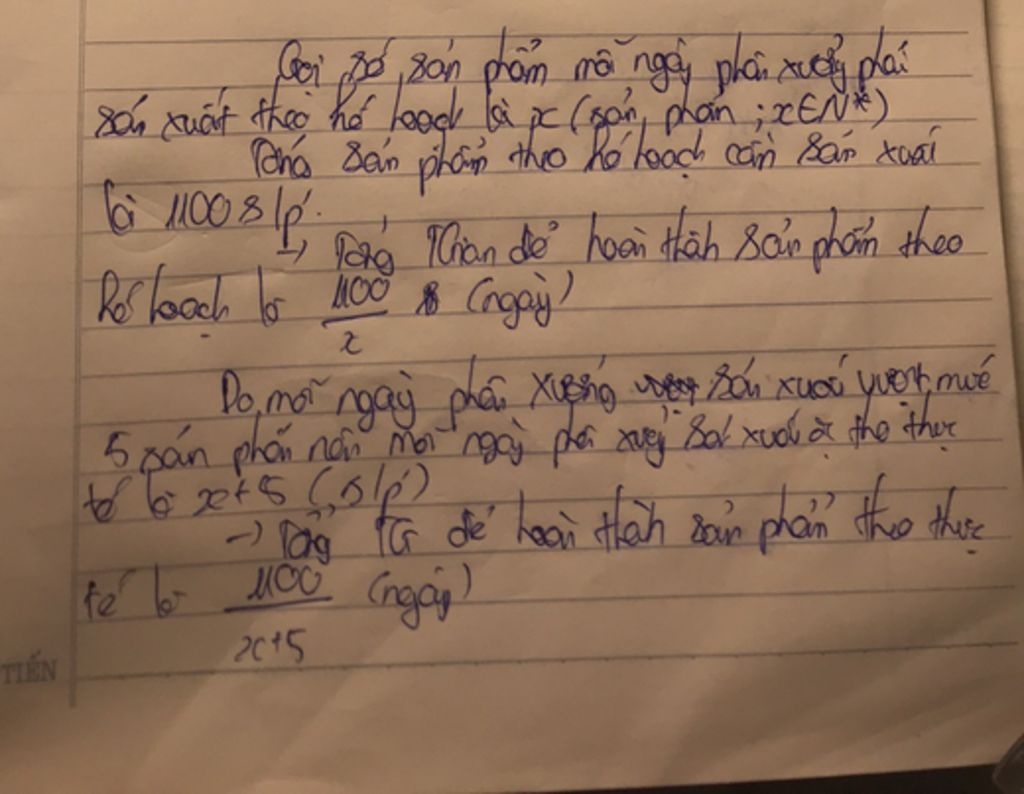 Gọi số sản phẩm mỗi ngày phân xưởng phải
sản xuất theo kế hoạch là x (sản phẩm ; x∈N*)
Tổng sản phẩm theo kế hoạch cần sản xuất
là 1100 s/p.
→ Tổng Tgian để hoàn thành sản phẩm theo
kế hoạch là 1100/x (ngày)
Do mỗi ngày phân xưởng sản xuất vượt mức
5 sản phẩm nên mỗi ngày phân xưởng sản xuất theo thực
tế là x+5 (s/p)
→ Tổng TG để hoàn thành sản phẩm theo thực
tế là 1100/x+5 (ngày)
TIẾN